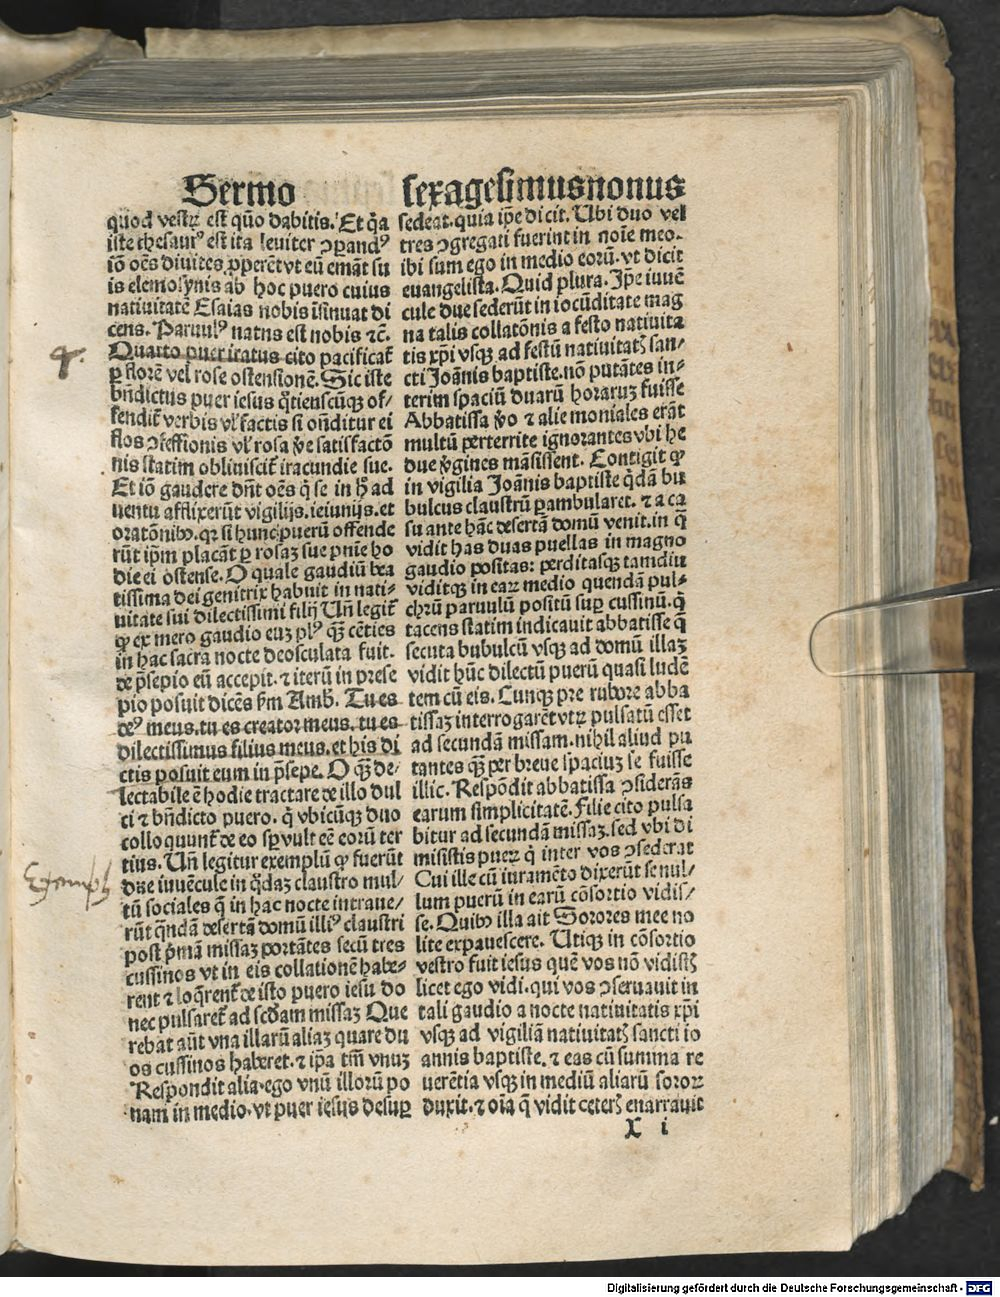 Sermo sexagesimusnonus
quod vestrꝝ est quo͂ dabitis. Et q̃a
iste thesaurꝰ est ita leuiter ꝯꝑandꝰ
io͂ oe͂s diuites ꝓperēt vt eū emāt su
is elemosynis ab hoc puero cuius
natiuitatē Esaias nobis īsinuat di
cens. Paruulꝰ natus est nobis ⁊c̄.
Quarto puer iratus cito pacificat̄
ꝑ florē vel rose ostensionē. Sic iste
bn̄dictus puer iesus q̄tienscūqꝫ of⸗
fendit̄ verbis vl̕ factis si on̄ditur ei
flos ꝯfessionis vl̕ rosa ṽe satisfactō
nis statim obliuiscit̄ iracundie sue.
Et io͂ gaudere dn̄t oe͂s q̄ se in hꝰ ad
uentu afflixerūt vigilijs. ieiunijs. et
oratōnibꝰ. qꝛ si hunc puerū offende
rūt ip̄m placāt ꝑ rosaꝫ sue pn̄ie ho
die ei ostense. O quale gaudiū bea
tissima dei genitrix habuit in nati⸗
uitate sui dilectissimi filij Un̄ legit̄
ꝙ ex mero gaudio euꝫ plꝰ qꝫ cēties
in hac sacra nocte deosculata fuit.
de p̄sepio eū accepit. ⁊ iterū in prese
pio posuit dicēs s̄m Amb̄. Tu es
deꝰ meus. tu es creator meus. tu es
dilectissimus filius meus. et his di
ctis posuit eum in p̄sepe. O qꝫ de⸗
lectabile ē hodie tractare de illo dul
ci ⁊ bn̄dicto puero. q̇ vbicūqꝫ duo
colloquunt̄ de eo sꝑ vult eē eorū ter
tius. Un̄ legitur exemplū ꝙ fuerūt
due iuuēcule in q̄daꝫ claustro mul⸗
tū sociales q̄ in hac nocte intraue⸗
rūt q̄ndā desertā domū illiꝰ claustri
post p̄mā missaꝫ portātes secū tres
cussinos vt in eis collationē habe⸗
rent ⁊ loq̄rent̄ de isto puero iesu do
nec pulsaret̄ ad secd̄am missaꝫ Que
rebat aūt vna illarū aliaꝫ quare du
os cussinos haberet. ⁊ ip̄a tm̄ vnuꝫ
Respondit alia. ego vnū illorū po
nam in medio. vt puer iesus desuꝑ
sedeat. quia ip̄e dicit. Ubi duo vel
tres ꝯgregati fuerint in noīe meo.
ibi sum ego in medio eorū. vt dicit
euangelista. Quid plura. Ip̄e iuuē
cule due sederūt in iocūditate mag
na talis collatōnis a festo natiuita
tis xp̄i vsqꝫ ad festū natiuitatꝭ san⸗
cti Joānis baptiste. nō putātes in⸗
terim spaciū duarū horaruꝫ fuisse
Abbatissa ṽo ⁊ alie moniales erāt
multū perterrite ignorantes vbi he
due v̄gines māsissent. Contigit ꝙ
in vigilia Joānis baptiste q̇dā bu
bulcus claustrū ꝑambularet. ⁊ a ca
su ante hāc desertā domū venit. in q̄
vidit has duas puellas in magno
gaudio positas: perditasqꝫ tamdiu
viditqꝫ in eaꝝ medio quendā pul⸗
chrū paruulū positū suꝑ cussinū. q̇
tacens statim indicauit abbatisse q̄
secuta bubulcū vsqꝫ ad domū illaꝫ
vidit hūc dilectū puerū quasi ludē
tem cū eis. Cunqꝫ pre rubore abba
tissaꝫ interrogarēt vtꝝ pulsatū esset
ad secundā missam. nihil aliud pu
tantes qꝫ per breue spaciuꝫ se fuisse
illic. Respōdit abbatissa ꝯsiderās
earum simplicitatē. Filie cito pulsa
bitur ad secundā missaꝫ. sed vbi di
misistis pueꝝ q̇ inter vos ꝯsederat
Cui ille cū iuramēto dixerūt se nul⸗
lum puerū in earū cōsortio vidis⸗
se. Quibꝰ illa ait Sorores mee no
lite expauescere. Utiqꝫ in cōsortio
vestro fuit iesus quē vos nō vidistꝭ
licet ego vidi. qui vos ꝯseruauit in
tali gaudio a nocte natiuitatis xp̄i
vsqꝫ ad vigiliā natiuitatꝭ sancti io
annis baptiste. ⁊ eas cū summa re
uerētia vsqꝫ in mediū aliarū soroꝝ
duxit. ⁊ oīa q̄ vidit ceterꝭ enarrauit
X i
4.
Exemplum
Digitalisierung gefördert durch die Deutsche Forschungsgemeinschaft - DFG